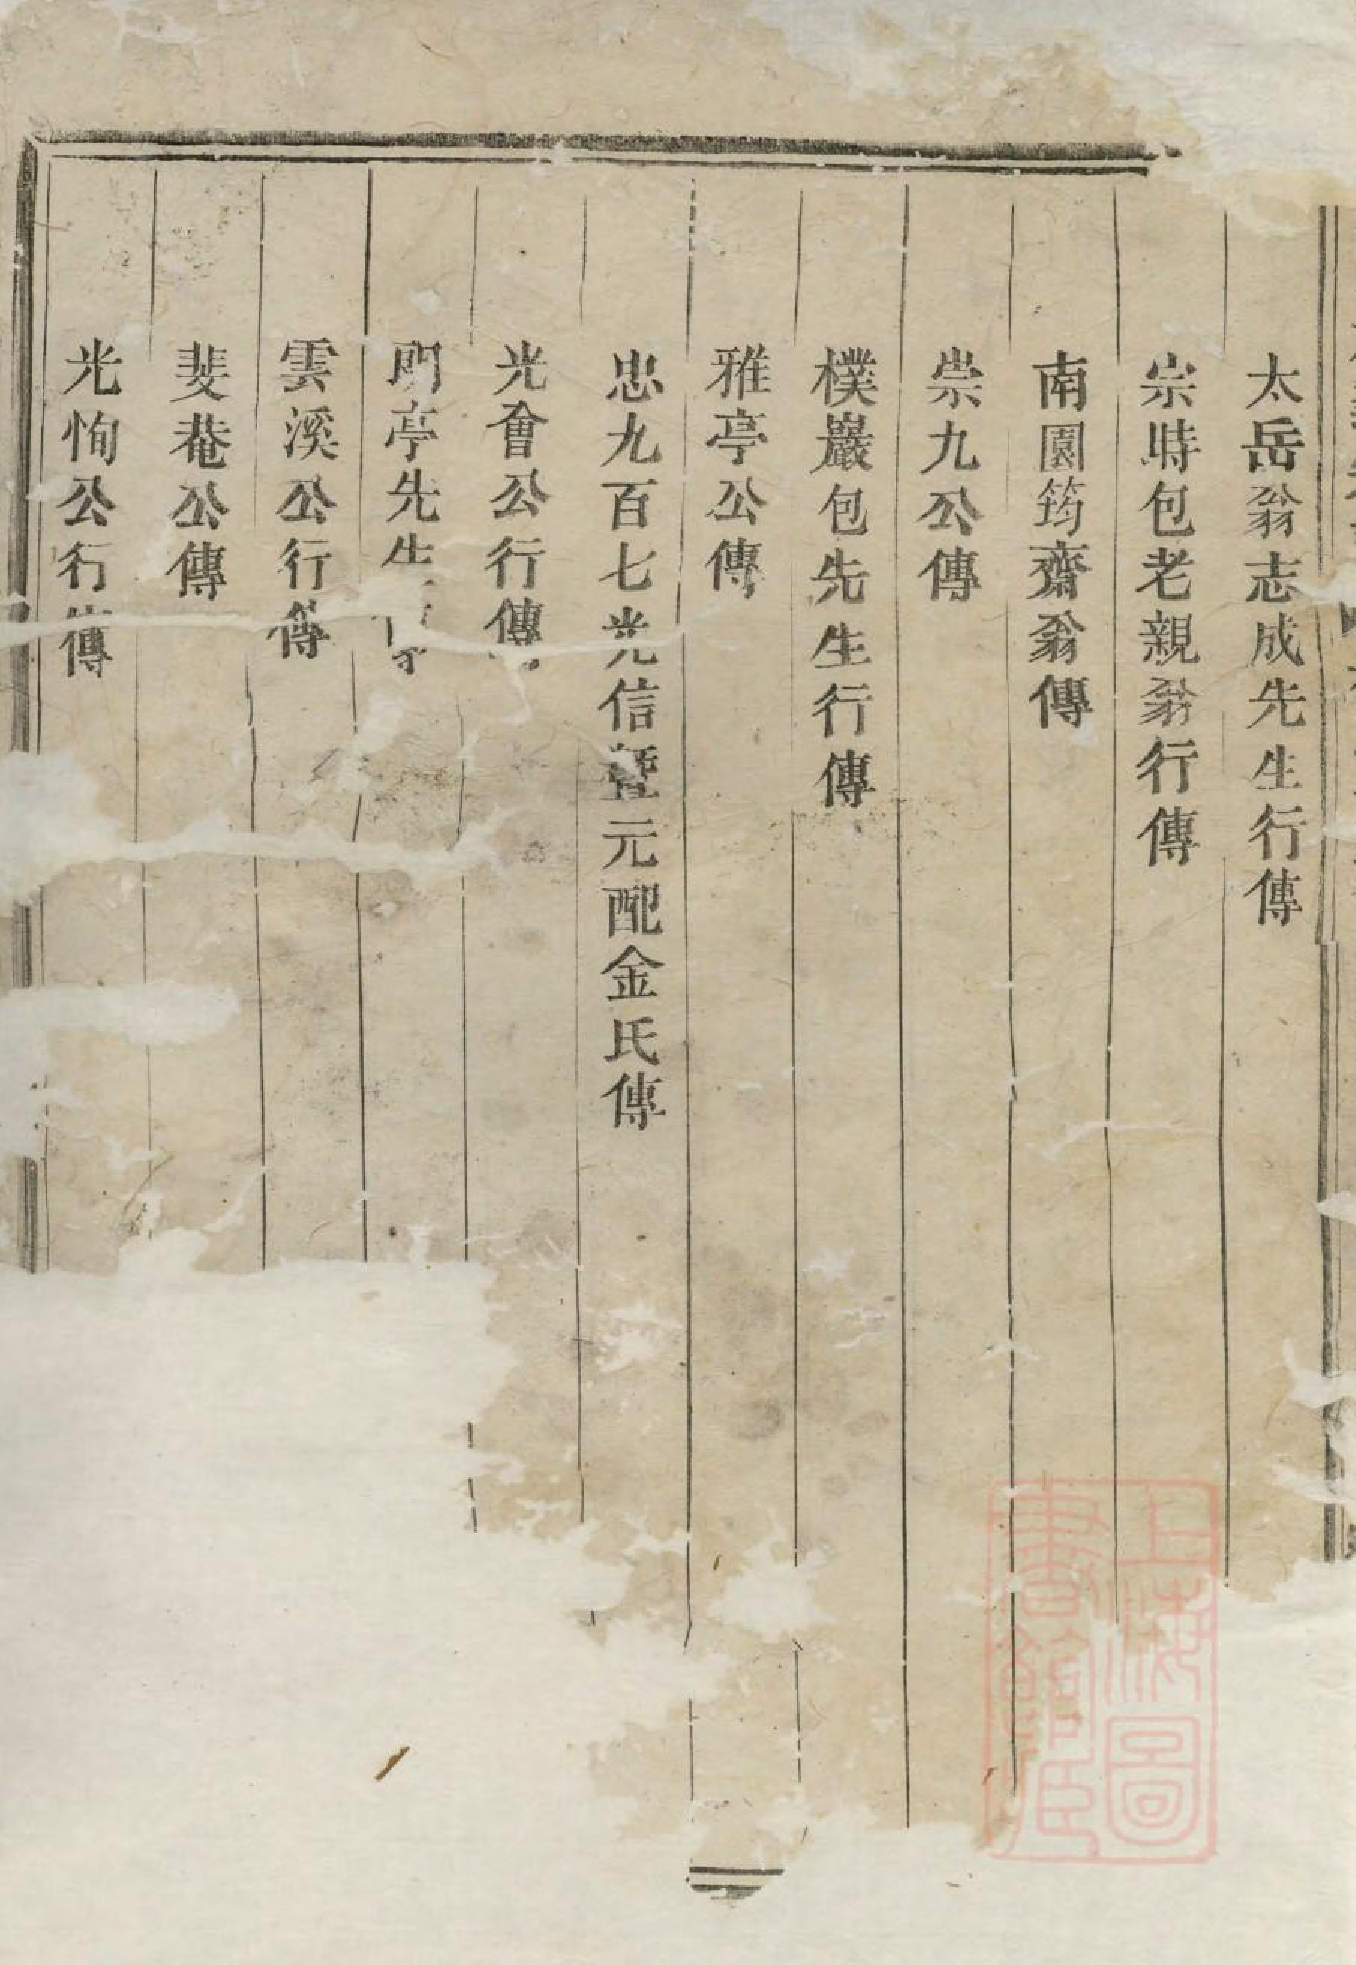 太岳翁志成先生行傳
宗時包老親翁行傳
南園筠齋翁傳
崇九公傳
樸巖包先生行傳
雅亭公傳
忠九百七光信暨元配金氏傳
光會公行傳
亭先生
雲溪公行傳
斐菴公傳
光恂公行傳
上海圖
書館藏